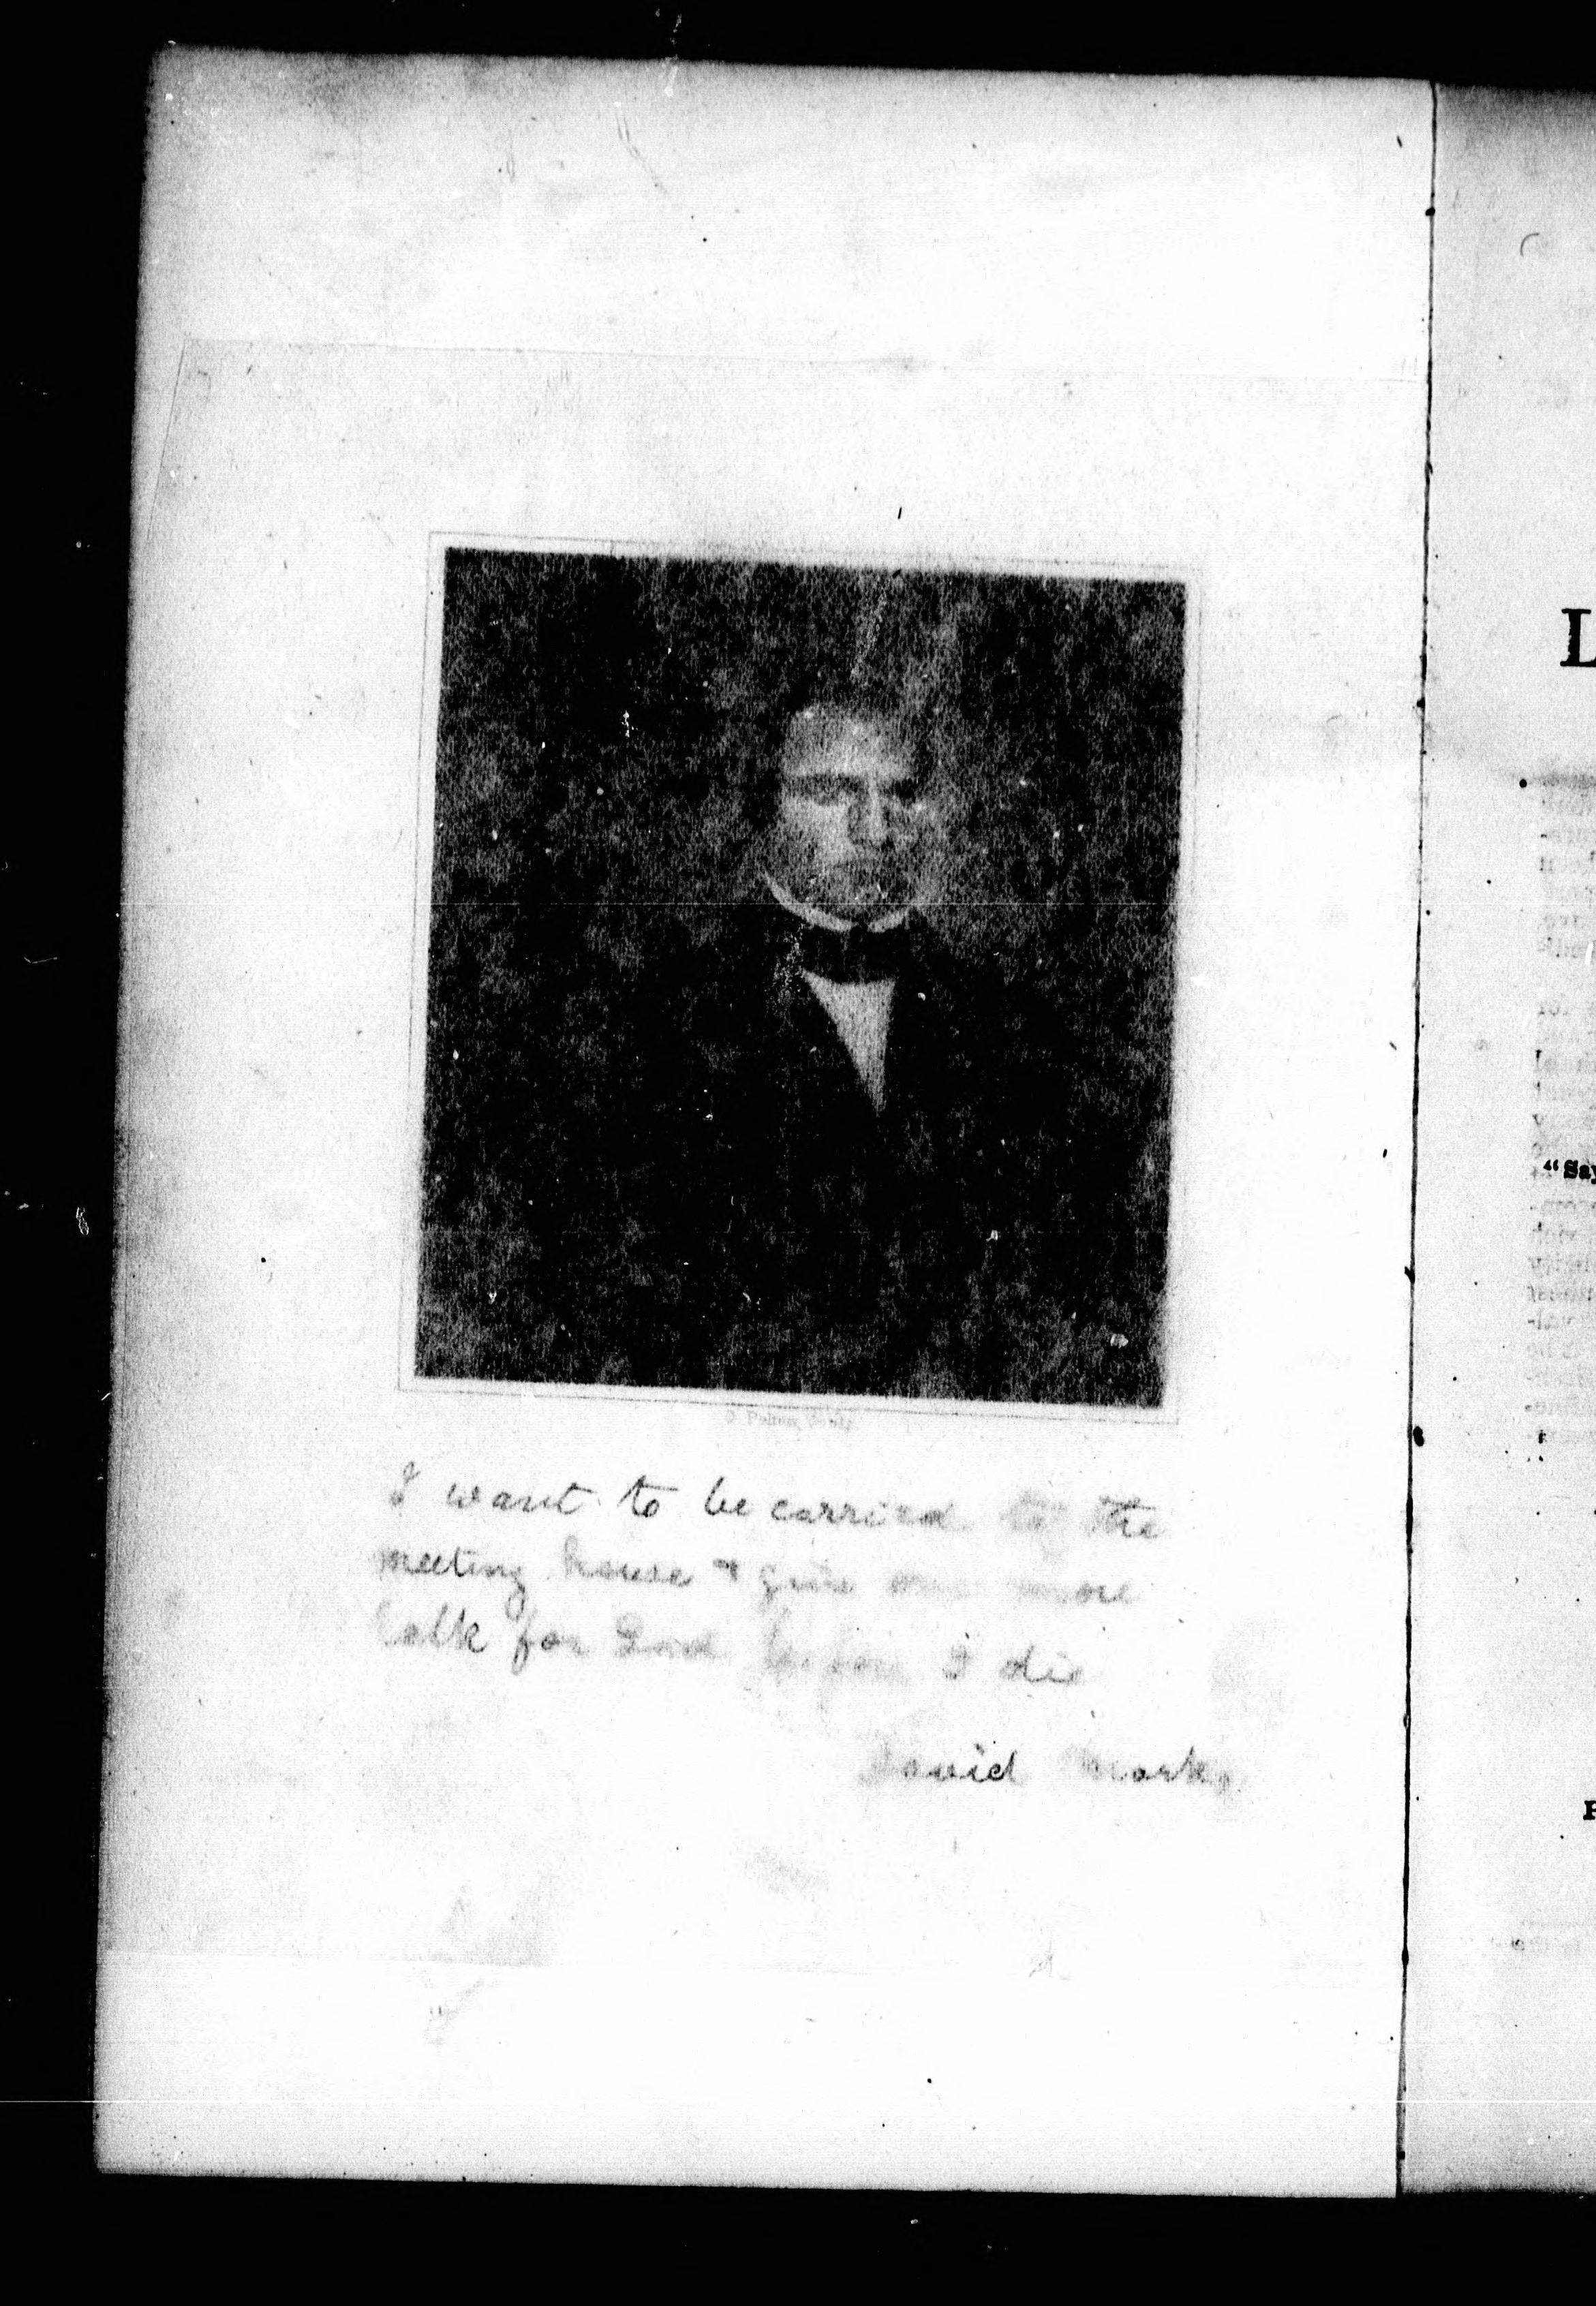 I want to be carried to the
meeting house & give one more
talk for God before I die
David Marks
L
"Say